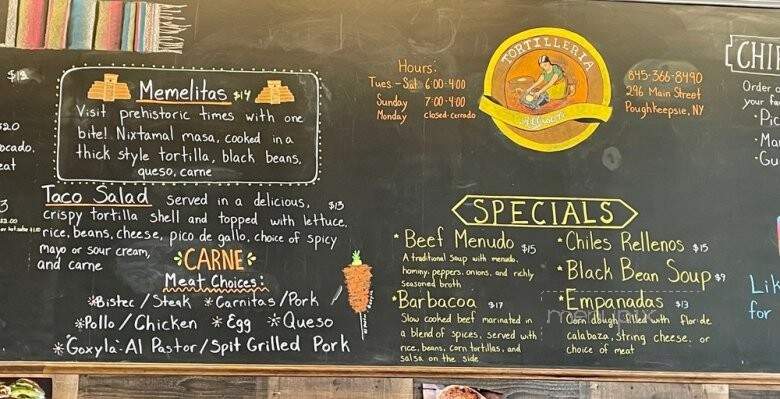 $13
$20
ocado,
eat
3
Memelitas $14
Visit prehistoric times with one
bite! Nixtamal masa, cooked in a
thick style tortilla, black beans,
queso, carne
Taco Salad served in a delicious, $13
crispy tortilla shell and topped with lettuce,
rice, beans, cheese, pico de gallo, choice of spicy
mayo or sour cream,
and carne
CARNE
Meat Choices:
*Bistec / Steak *Carnitas/Pork
*Pollo / Chicken *Egg *Queso
*Goxyla-Al Pastor/Spit Grilled Pork
Hours:
Tues-Sat 6:00-4:00
Sunday 7:00-4:00
Monday closed-cerrado
TORTILLERIA
845-366-8490
296 Main Street
Poughkeepsie, NY
SPECIALS
*Beef Menudo $15
A traditional soup with menudo,
hominy, peppers, onions, and richly
seasoned broth
*Barbacoa $17
Slow cooked beef marinated in
a blend of spices, served with
rice, beans, corn tortillas, and
salsa on the side
*Chiles Rellenos $15
*Black Bean Soup $9
*Empanadas $13
Corn dough filled with flor de
calabaza, string cheese, or
choice of meat
menupix
CHI
Order a
your fa
•Pic
•Ma
•Gu
Lik
for